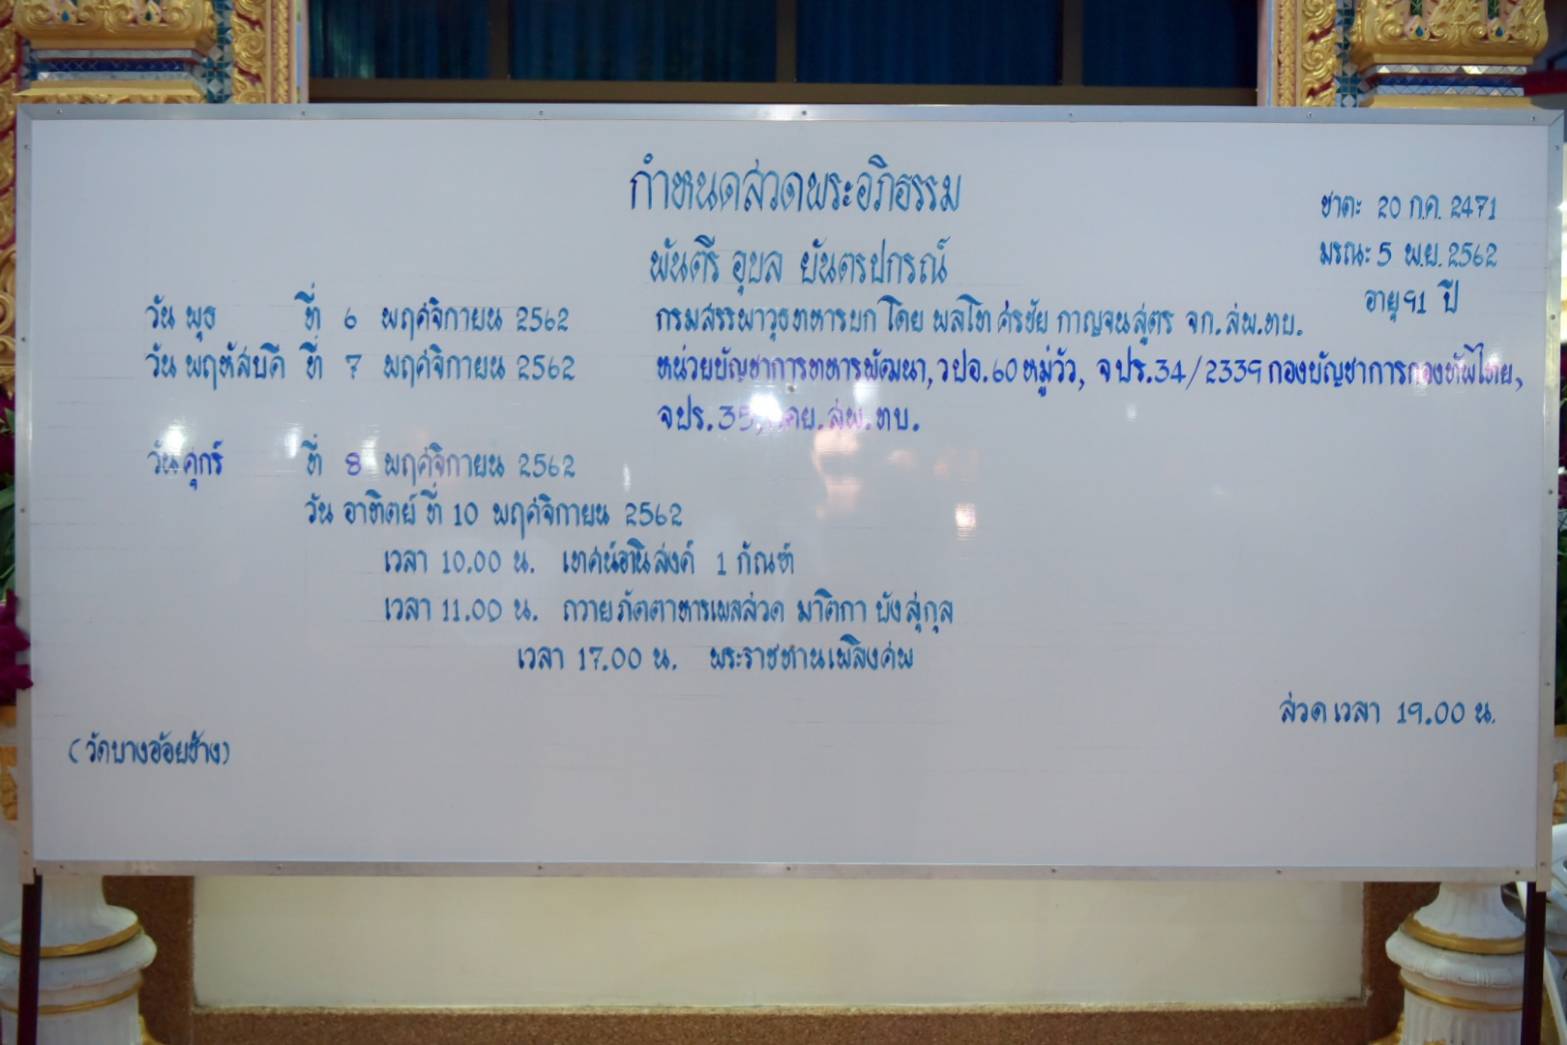 กำหนดสวดพระอภิธรรม
ชาตะ 20 ก.ค. 2471
พันตรี อุบล ยันตรปกรณ์
มรณะ 5 พ.ย. 2562
อายุ 91 ปี
วัน พุธ ที่ 6 พฤศจิกายน 2562 กรมสรรพาวุธทหารบก โดย พลโท ศรชัย กาญจนสูตร จก. สพ.ทบ.
วัน พฤหัสบดี ที่ 7 พฤศจิกายน 2562 หน่วยบัญชาการทหารพัฒนา, วปอ.60 หมู่วัว, จปร.34/2339 กองบัญชาการกองทัพไทย,
จปร.35, สพ.ทบ.
วันศุกร์ ที่ 8 พฤศจิกายน 2562
วัน อาทิตย์ ที่ 10 พฤศจิกายน 2562
เวลา 10.00 น. เทศน์อานิสงค์ 1 กัณฑ์
เวลา 11.00 น. ถวายภัตตาหารเพลสวด มาติกา บังสุกุล
เวลา 17.00 น. พระราชทานเพลิงศพ
สวด เวลา 19.00 น.
(วัดบางอ้อยช้าง)